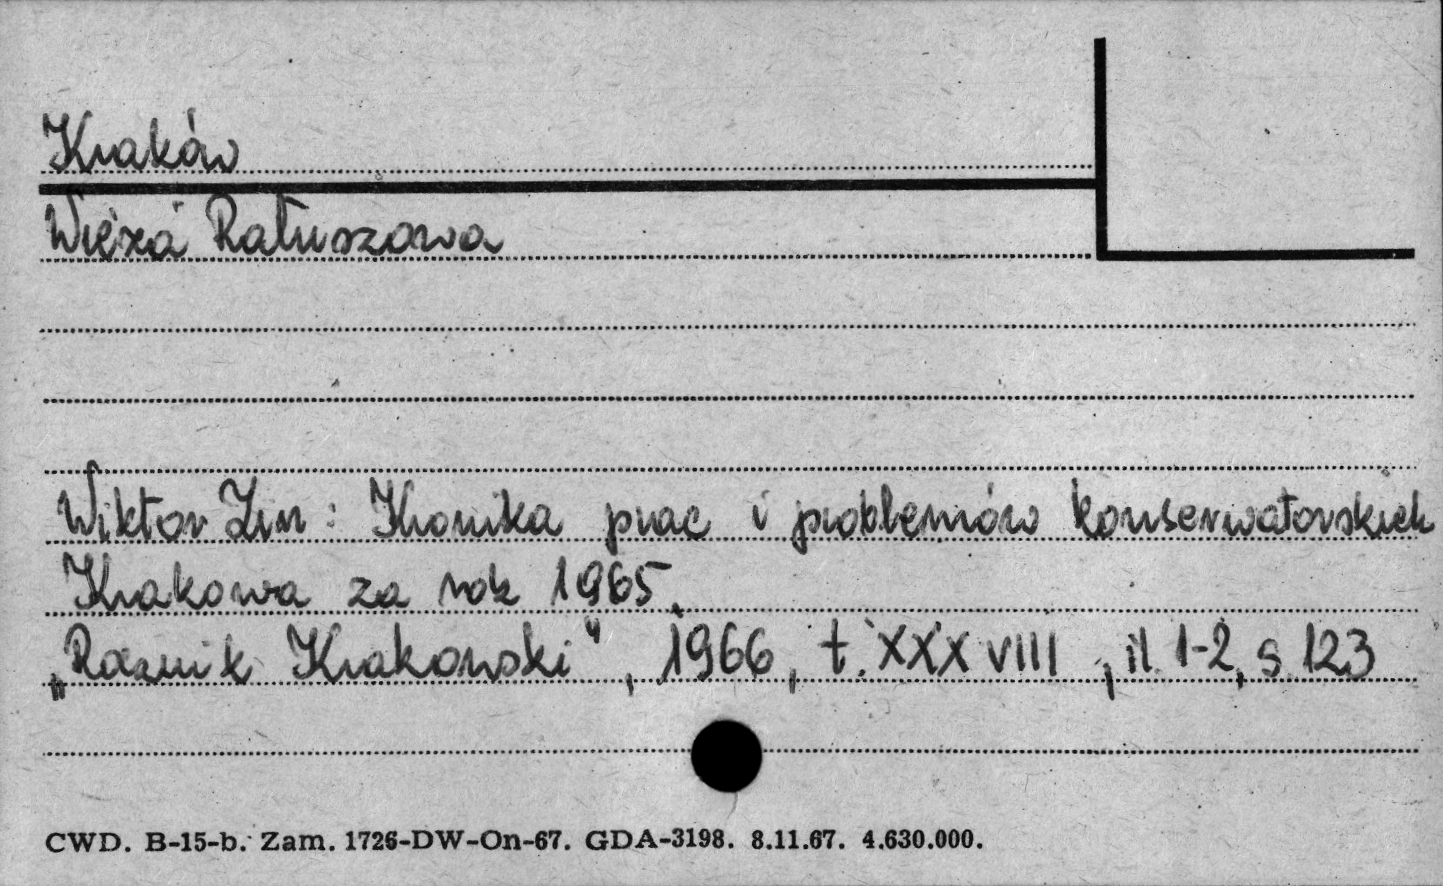 Kraków
Wieża Ratuszowa
Wiktor Zin: Kronika prac i problemów konserwatorskich
Krakowa za rok 1965.
„Rocznik Krakowski", 1966, t. XXXVIII, il 1-2, s. 123
CWD. B-15-b. Zam. 1726-DW-On-67. GDA-3198. 8.11.67. 4.630.000.